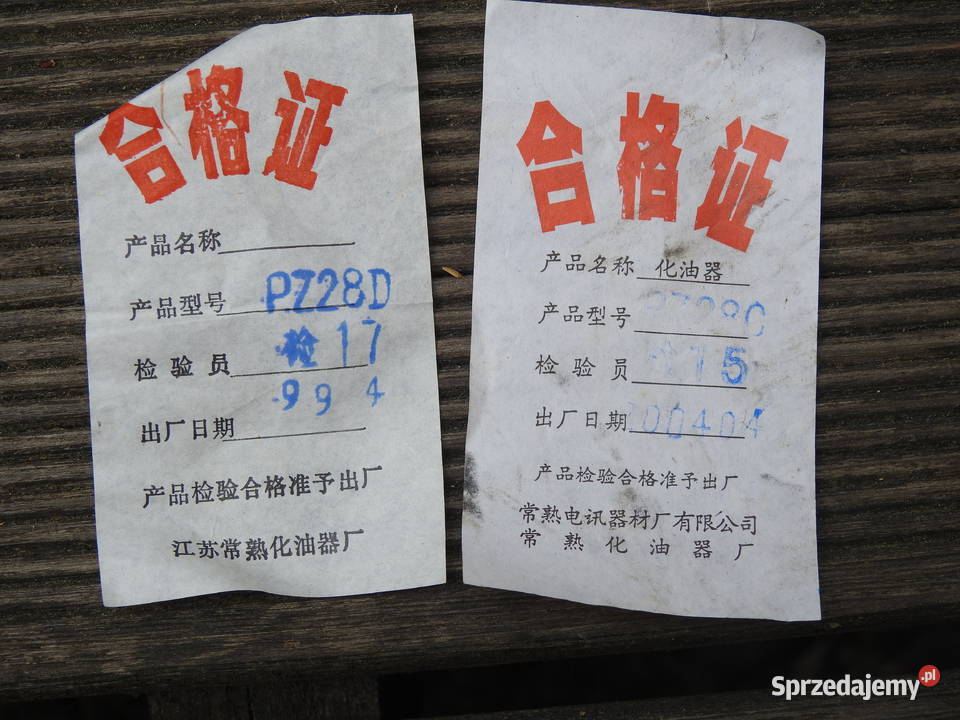 合格证
产品名称
产品型号 PZ28D
检验员 检17
99 4
出厂日期
产品检验合格准予出厂
江苏常熟化油器厂
合格证
产品名称 化油器
产品型号 28C
检验员 15
出厂日期 000404
产品检验合格准予出厂
常熟电讯器材厂有限公司
常熟化油器厂
Sprzedajemy.pl